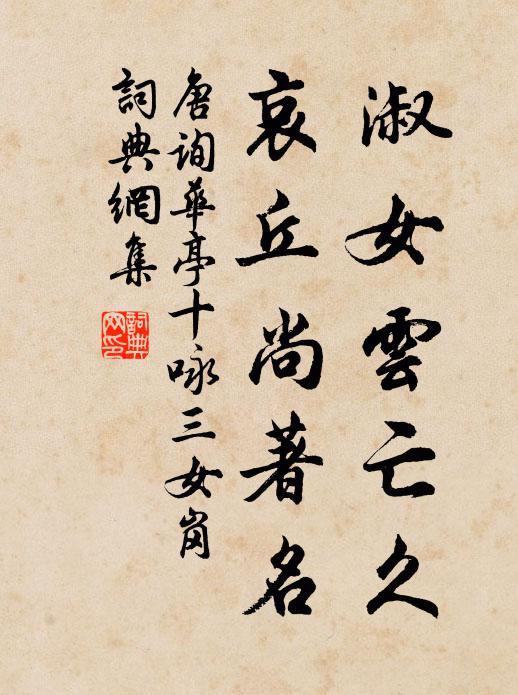 淑女雲亡久
哀丘尚著名
唐詢華亭十咏三女崗
詞典網集
詞典
网印